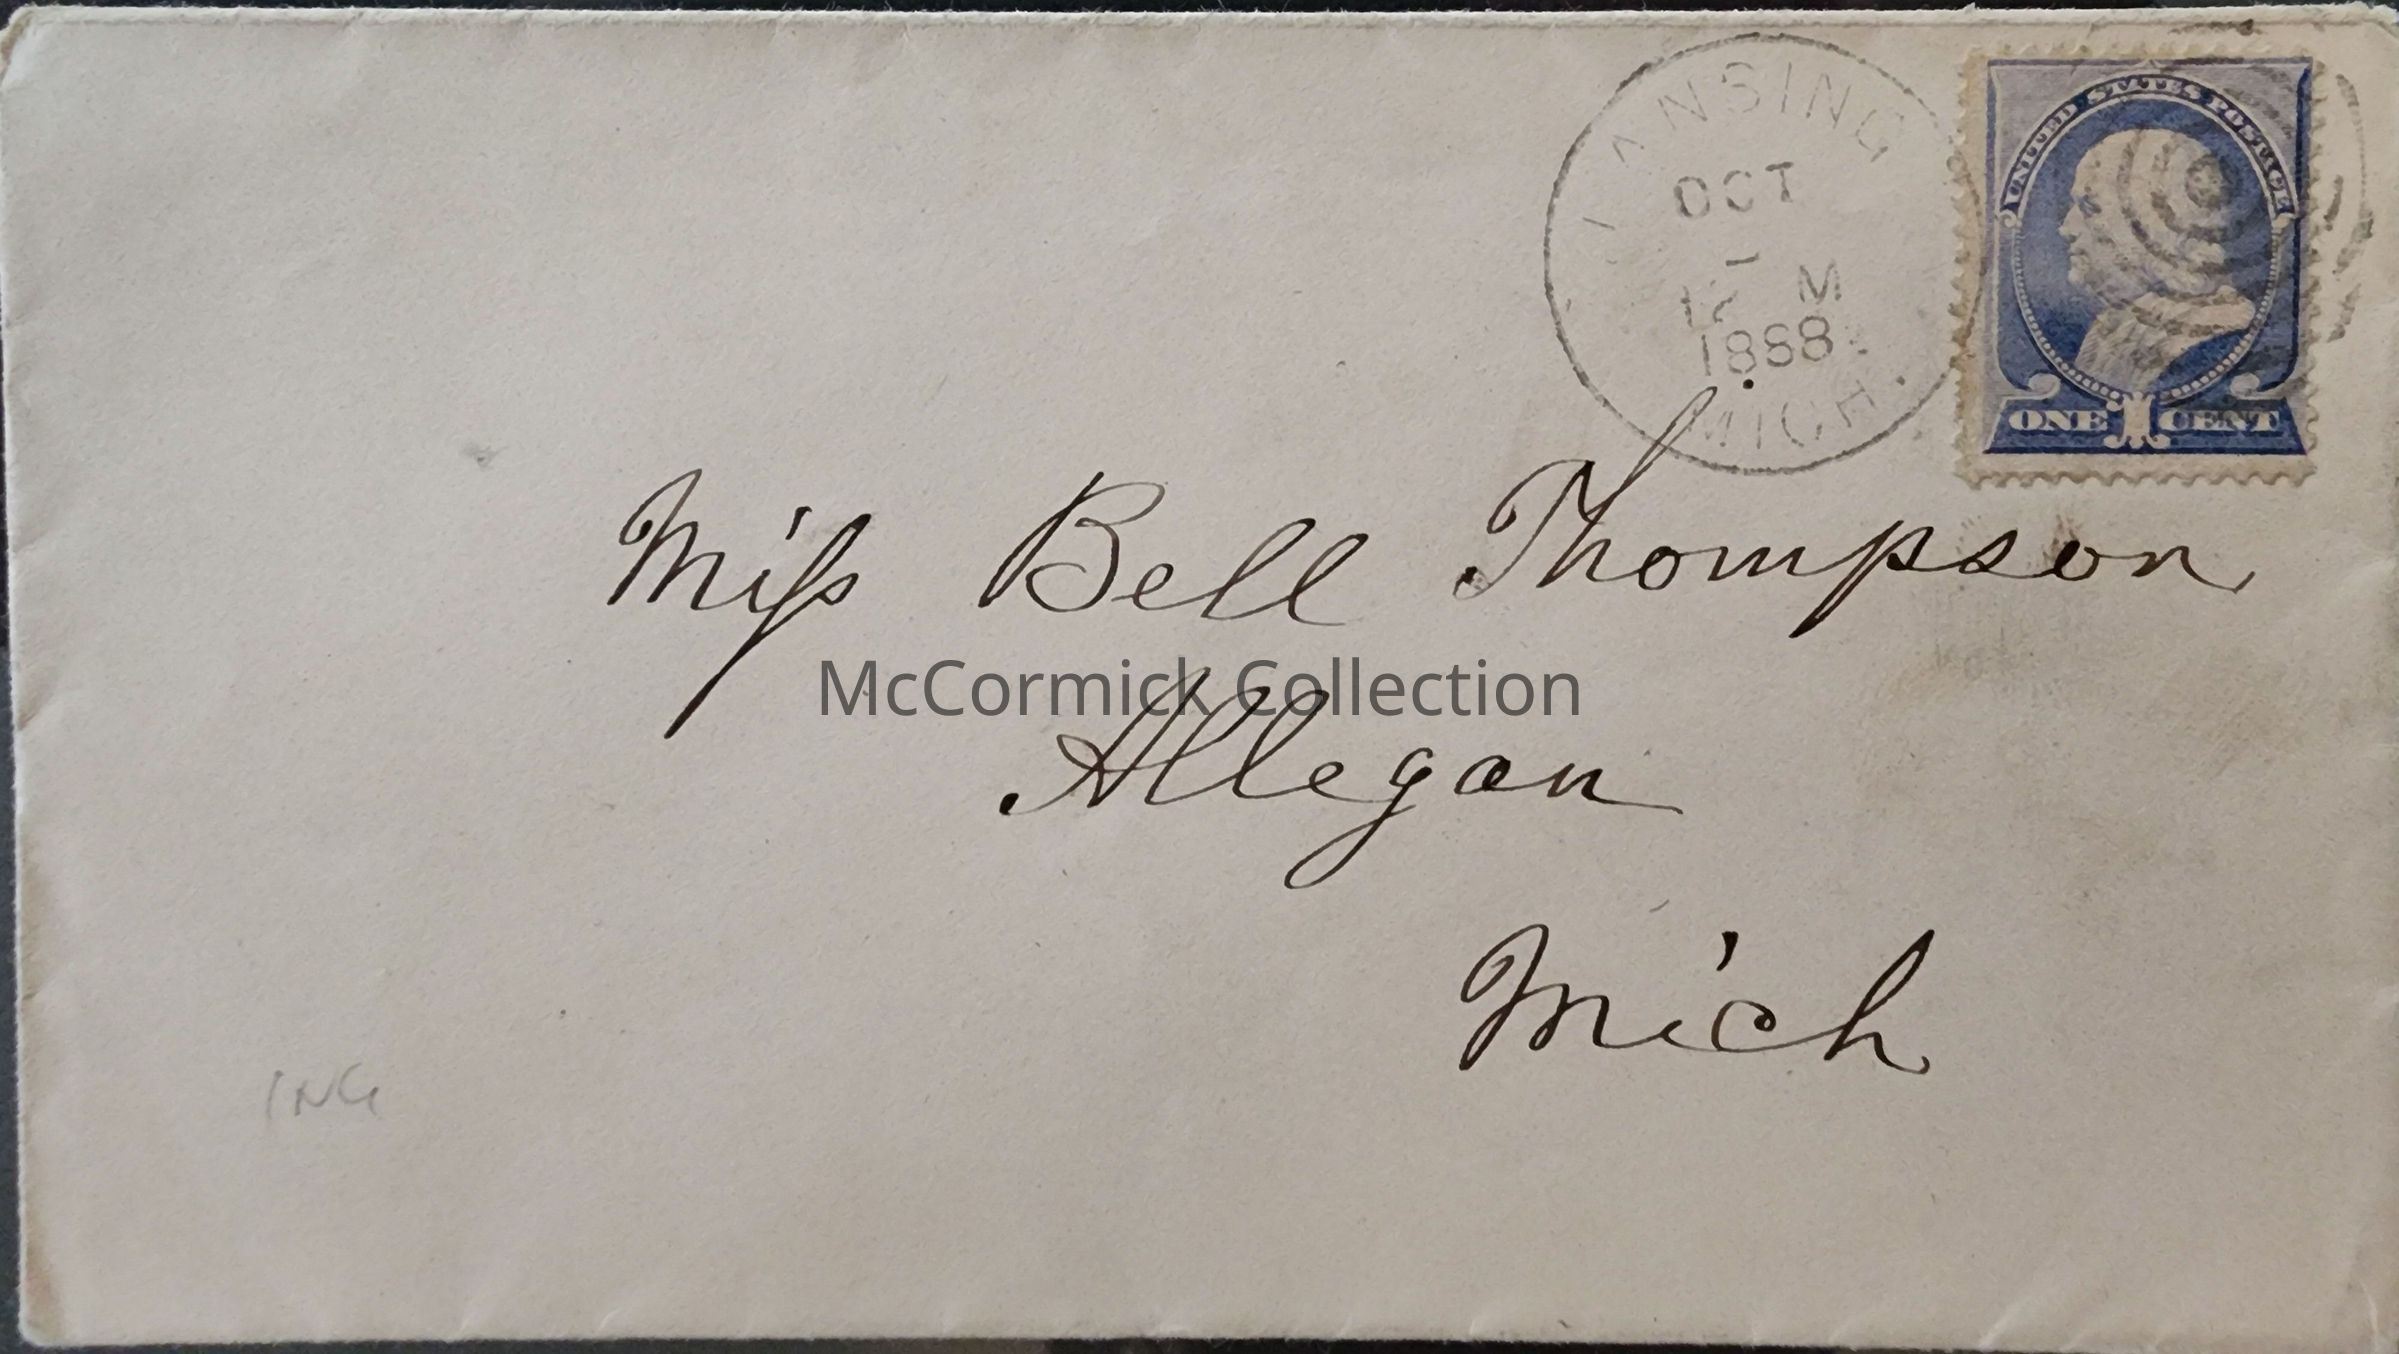 LANSING
OCT
12 M
1888
MICH.
UNITED STATES POSTAGE
ONE 1 CENT
Miss Bell Thompson
McCormick Collection
Allegan
Mich
ING